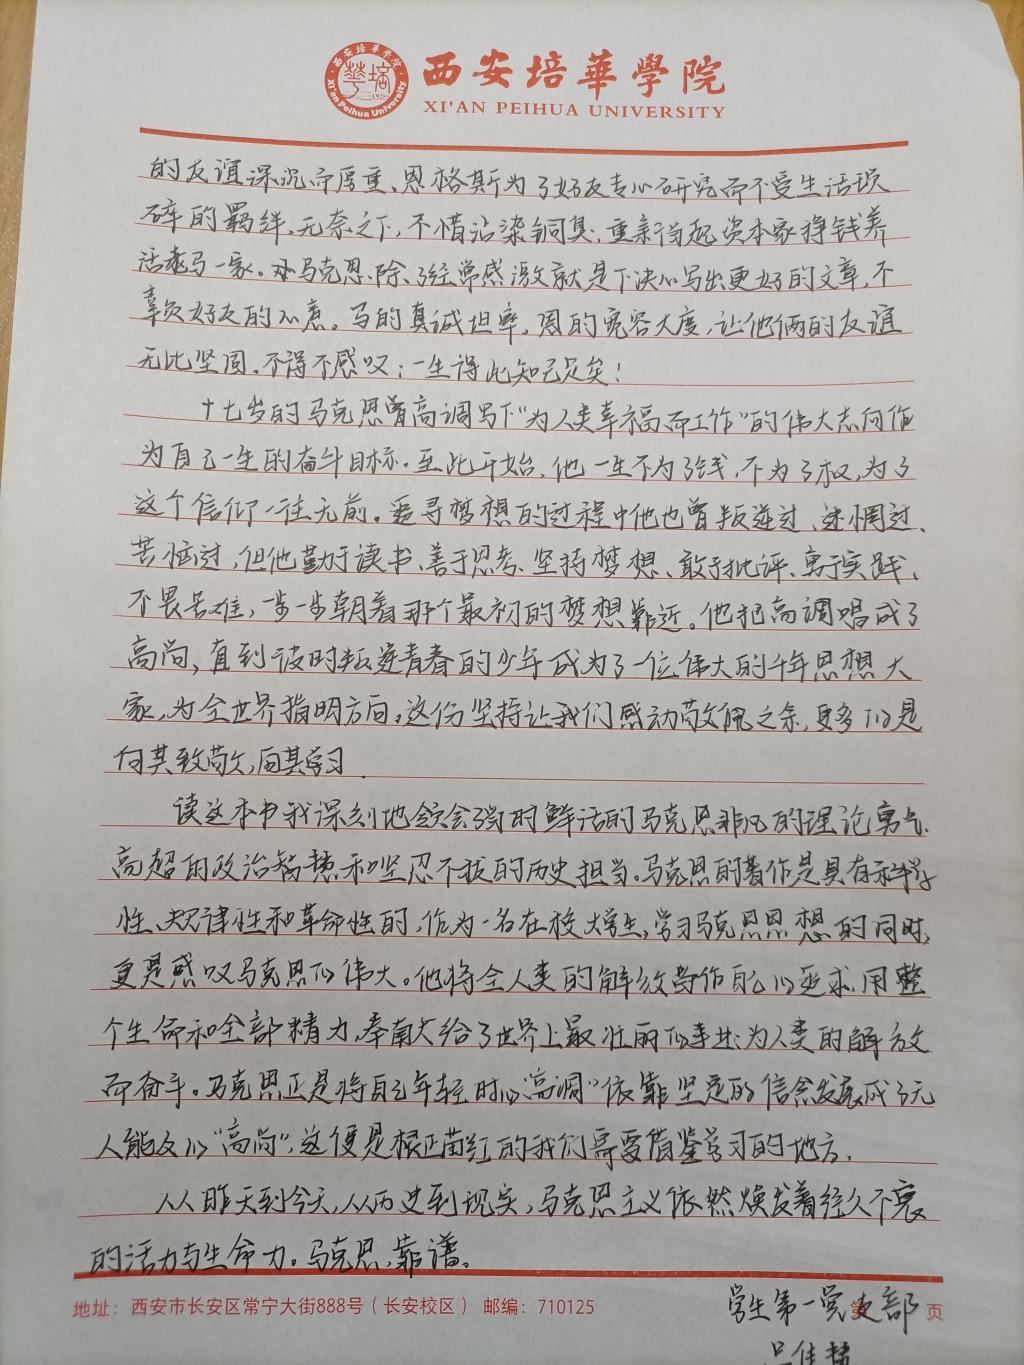 西安培華學院
XI'AN PEIHUA UNIVERSITY
的友谊深沉而厚重、恩格斯为了好友专心研究而不受生活琐
碎的羁绊,无奈之下,不惜沾染铜臭,重新当起资本家挣钱养
活老马一家。马克思除了经常感激就是下决心写出更好的文章,不
辜负好友的心意。马的真诚坦率,恩的宽容大度,让他俩的友谊
无比坚固。不得不感叹:一生得此知己足矣!
十七岁的马克思曾高调写下"为人类幸福而工作"的伟大志向作
为自己一生的奋斗目标。至此开始,他一生不为了钱,不为了权,为了
这个信仰一往无前。追寻梦想的过程中他也曾叛逆过、迷惘过、
苦恼过,但他勤于读书、善于思考、坚持梦想、敢于批评、勇于实践、
不畏苦难,一步一步朝着那个最初的梦想靠近。他把高调唱成了
高尚,直到彼时叛逆青春的少年成为了一位伟大的千年思想大
家,为全世界指明方向。这份坚持让我们感动敬佩之余,更多的是
向其致敬,向其学习.
读这本书我深刻地领会到鲜活的马克思非凡的理论勇气、
高超的政治智慧和坚忍不拔的历史担当。马克思的著作是具有科学
性、规律性和革命性的,作为一名在校大学生,学习马克思思想的同时,
更是感叹马克思的伟大。他将全人类的解放当作自己的追求,用整
个生命和全部精力,奉献给了世界上最壮丽的事业:为人类的解放
而奋斗。马克思正是将自己年轻时的"高调"依靠坚定的信念发展成了无
人能及的"高尚",这便是根正苗红的我们需要借鉴学习的地方.
从昨天到今天,从历史到现实,马克思主义依然焕发着经久不衰
的活力与生命力。马克思,靠谱。
地址:西安市长安区常宁大街888号(长安校区) 邮编:710125
页
学生第一党支部